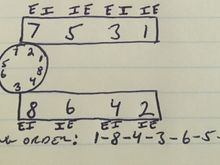 EI IE EI IE
7 5 3 1
7 2 1 8 4 3 6 5
8 6 4 2
EI IE EI IE
ORDER: 1-8-4-3-6-5-